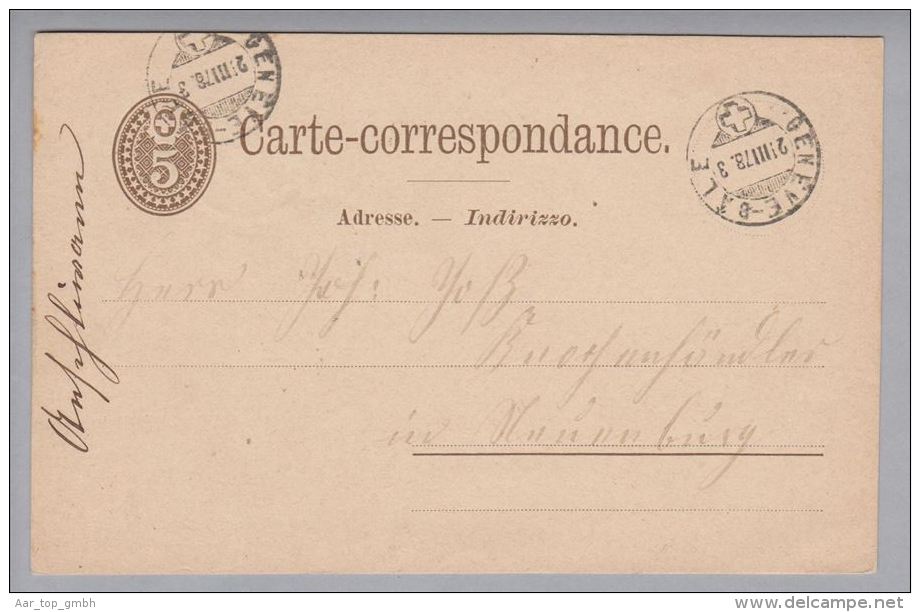 GENEVE-BALE
2!III78. 3
5
Carte-correspondance.
GENEVE-BALE
2!III78. 3
Adresse. — Indirizzo.
Herr Joh: Joß
Knochenhändler
in Neuenburg
Aar_top_gmbh
www.delcampe.net